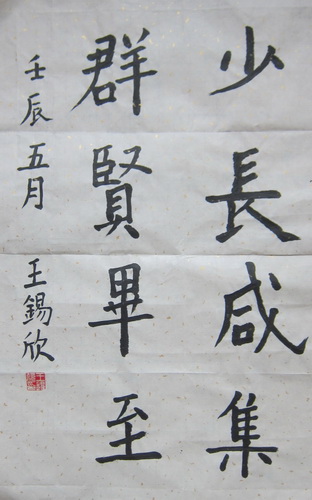 少長咸集
群賢畢至
壬辰五月 王錫欣